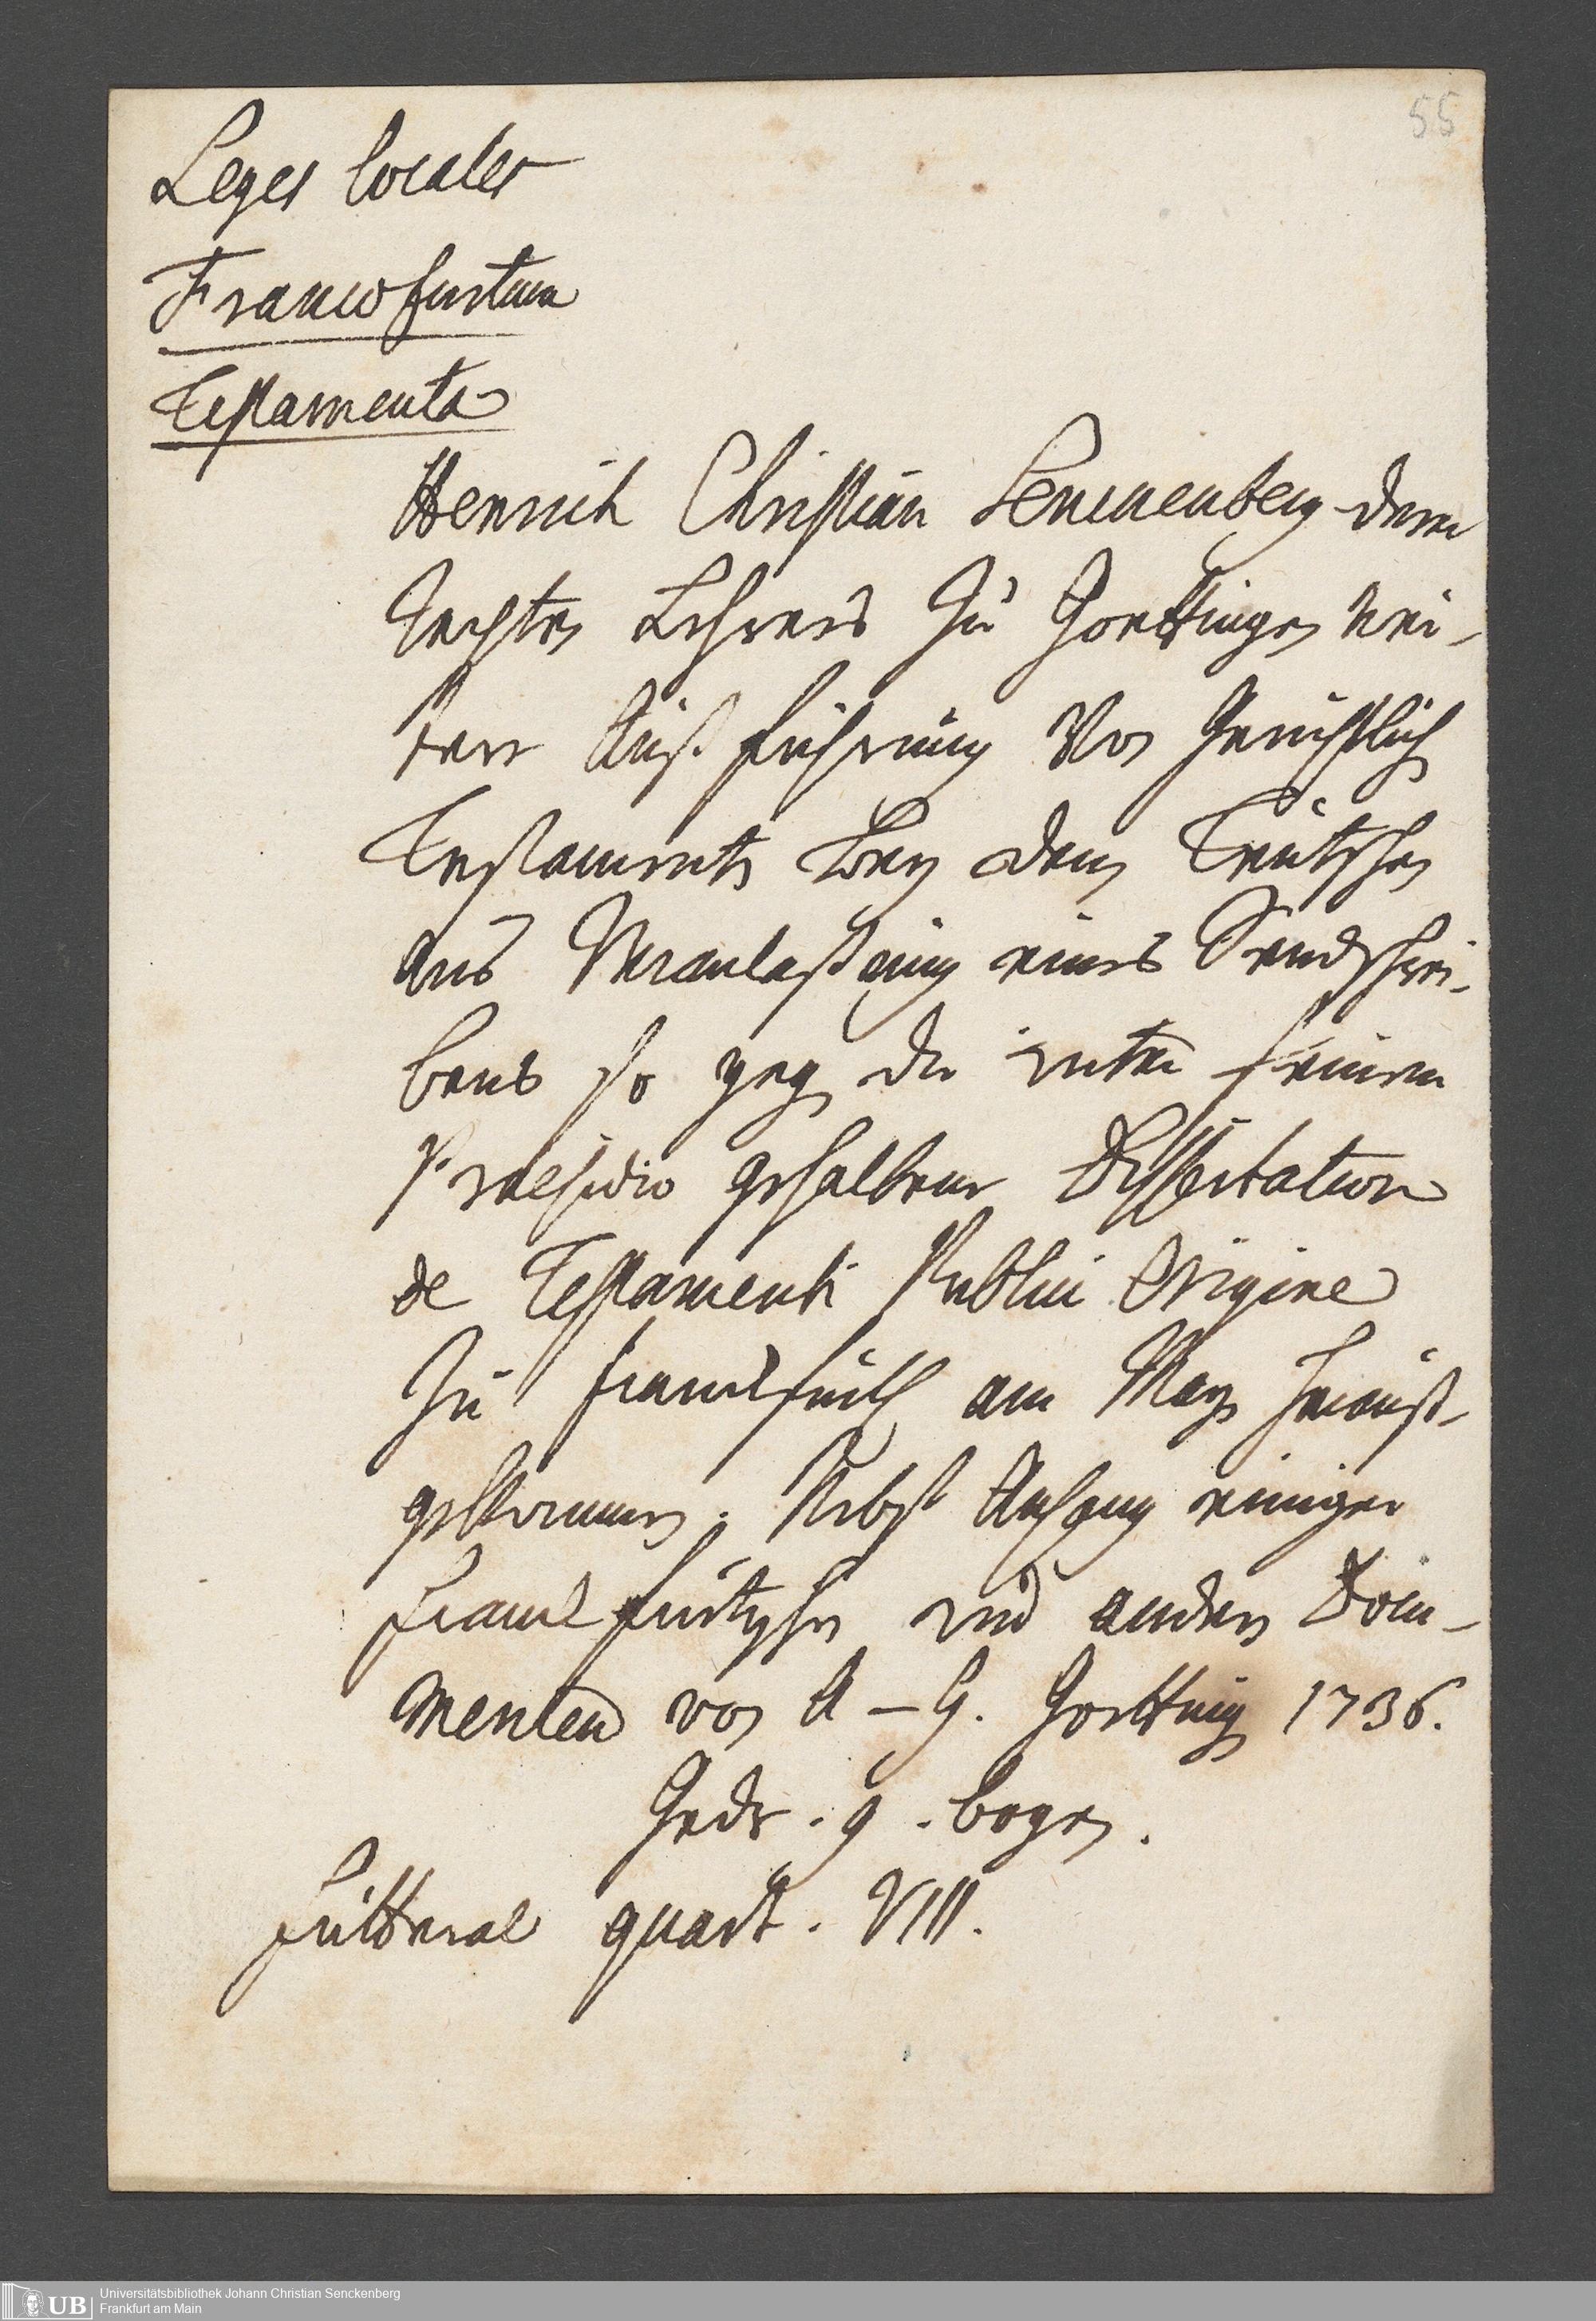 55
Leges locales
Francofurtum
Testamenta
Henrich Christian Senckenberg deren
Rechten Lehrers zu Goettingen wei-
tere Außführung Von Gerichtlich
Testamenten bey den Teutschen
aus Veranlaßung eines Sendschrei-
bens so geg die unter seinem
Praesidio gehaltene Dissertation
de Testamenti Publici Origine
zu Franckfurth am Mayn herauß-
gekommen. Nebst Anhang einiger
Franckfurtischen und andern Docu-
menten von A – G. Goetting 1736.
Gedr. 9. bogen.
Futteral quart. VIII.
UB
Universitätsbibliothek Johann Christian Senckenberg
Frankfurt am Main